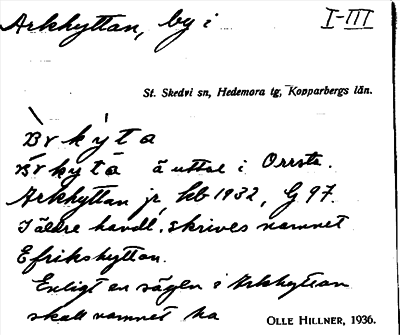 Arkhyttan, by i I-III
St. Skedvi sn, Hedemora tg, Kopparbergs län.
Brkyta
Brkyta ä uttal i Orrsta.
Arkhyttan jr, kb 1932, G 97.
I äldre handl. skrives namnet
Efrikshyttan.
Enligt en sägen i Arkhyttan
skall namnet ha
OLLE HILLNER, 1936.